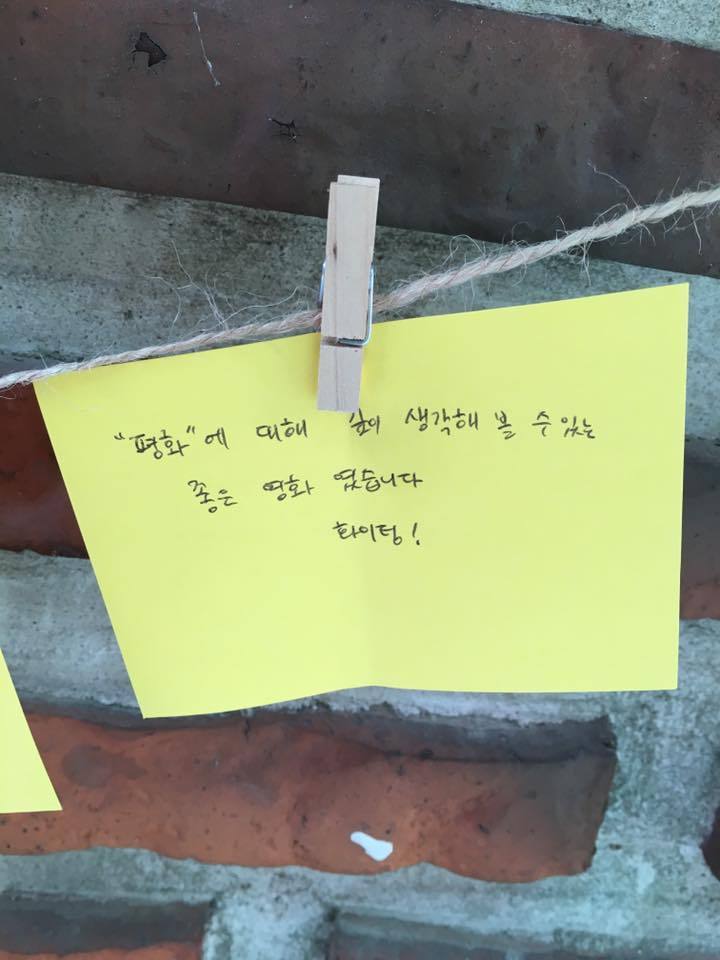 "평화"에 대해 깊이 생각해 볼 수 있는
좋은 영화 였습니다
화이팅!